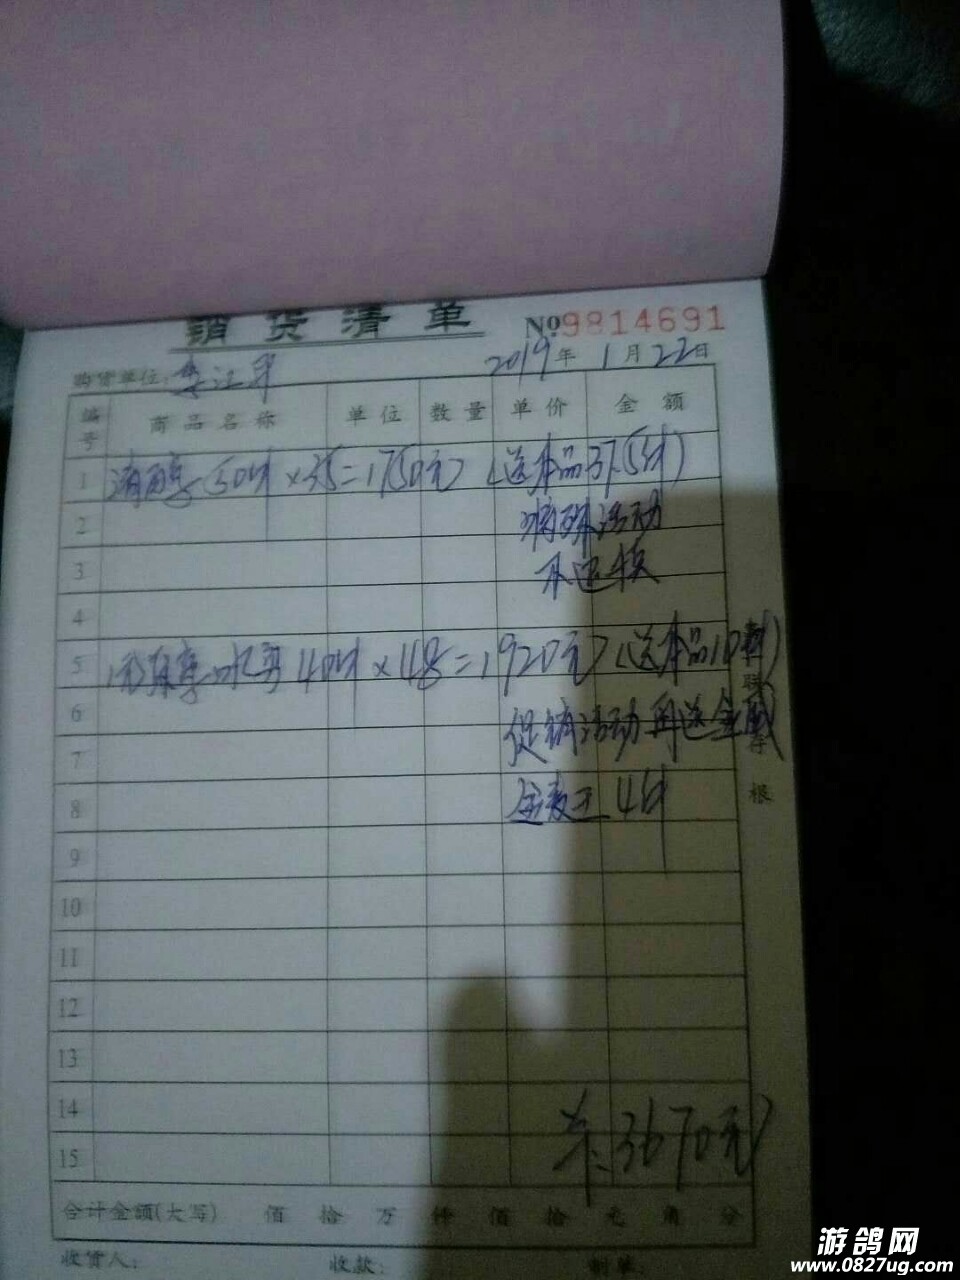 销货清单 №9814691
购货单位: 2019年1月22日
编号 商品名称 单位 数量 单价 金额
1 清爽 50件×35=1750元 (送本品37.5件)
2 活动
3 不退换
4
5 水 40件×48=1920元 (送本品10件)
6 促销活动再送金威
7
8 金麦王4件
9
10
11
12
13
14
15 共: 3670元
合计金额(大写) 佰 拾 万 仟 佰 拾 元 角 分
收货人: 收款: 制单:
联
存
根
游鸽网
www.0827ug.com